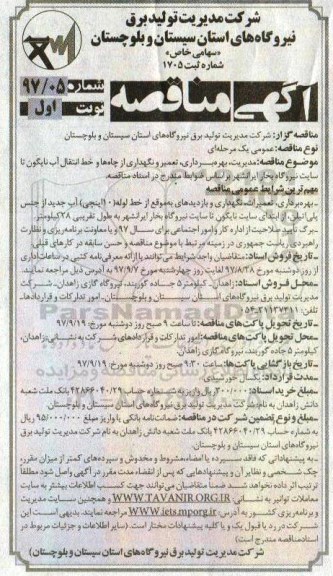 شرکت مدیریت تولید برق
نیروگاه‌های استان سیستان و بلوچستان
«سهامی خاص»
شماره ثبت ۱۷۰۵
آگهی مناقصه
شماره ۹۷/۰۵
نوبت اول
مناقصه گزار: شرکت مدیریت تولید برق نیروگاه‌های استان سیستان و بلوچستان
نوع مناقصه: عمومی یک مرحله‌ای
موضوع مناقصه: مدیریت، بهره‌برداری، تعمیر و نگهداری از چاه‌ها و خط انتقال آب نایگون تا
سایت نیروگاه بخار ایرانشهر براساس ضوابط مندرج در اسناد مناقصه.
مهم‌ترین شرایط عمومی مناقصه
ـ بهره‌برداری، تعمیرات، نگهداری و بازدیدهای به‌موقع از خط لوله (۱۰ اینچی) آب جدید از جنس
پلی اتیلن از ابتدای سایت نایگون تا سایت نیروگاه بخار ایرانشهر به طول تقریبی ۲۸ کیلومتر.
ـ برگ تأیید صلاحیت از اداره کار و امور اجتماعی برای سال ۹۷ و یا معاونت برنامه‌ریزی و نظارت
راهبردی ریاست جمهوری در زمینه مرتبط با موضوع مناقصه و حسن سابقه در کارهای قبلی.
ـ تاریخ فروش اسناد: متقاضیان واجد شرایط می‌توانند با ارائه معرفی‌نامه کتبی در ساعات اداری
از روز دوشنبه مورخ ۹۷/۸/۲۸ لغایت روز چهارشنبه مورخ ۹۷/۹/۷ به آدرس ذیل مراجعه نمایند.
ـ محل فروش اسناد: زاهدان، کیلومتر ۵ جاده گوربند، نیروگاه گازی زاهدان، شرکت
مدیریت تولید برق نیروگاه‌های استان سیستان و بلوچستان، امور تدارکات و قراردادها.
تلفن:
ـ تاریخ تحویل پاکت‌های مناقصه: تا ساعت ۹ صبح روز دوشنبه مورخ: ۹۷/۹/۱۹
ـ محل تحویل پاکت‌های مناقصه: امور تدارکات و قراردادهای شرکت به نشانی: زاهدان،
کیلومتر ۵ جاده گوربند، نیروگاه گازی زاهدان.
ـ تاریخ بازگشایی پاکت‌ها: ساعت ۹:۳۰ صبح روز دوشنبه مورخ: ۹۷/۹/۱۹
مدت قرارداد: یکسال خورشیدی
مبلغ خرید اسناد: ریال واریز به شماره حساب ۴۲۸۶۶۰۴۰/۲۹ بانک ملت شعبه
دانش زاهدان به نام شرکت مدیریت تولید برق نیروگاه‌های استان سیستان و بلوچستان
مبلغ و نوع تضمین شرکت در مناقصه: ضمانت‌نامه بانکی یا واریز مبلغ ۹۵۰/۰۰۰/۰۰۰ ریال
به شماره حساب ۴۲۸۶۶۰۴۰/۲۹ بانک ملت شعبه دانش زاهدان به نام شرکت مدیریت تولید برق
نیروگاه‌های استان سیستان و بلوچستان.
ـ به پیشنهاداتی که فاقد سپرده یا امضاء، مشروط و مخدوش و سپرده‌های کمتر از میزان مقرر،
چک شخصی و نظایر آن و پیشنهادهایی که پس از انقضاء مدت مقرر در آگهی واصل شود مطلقاً
ترتیب اثر داده نخواهد شد. ضمناً متقاضیان می‌توانند جهت کسب اطلاعات بیشتر به سایت
معاملات توانیر به نشانی WWW.TAVANIR.ORG.IR و همچنین سایت مدیریت
و برنامه‌ریزی کشور به آدرس www.iets.mporg.ir مراجعه نمایند. بدیهی است این
شرکت در رد یا قبول یک و یا کلیه پیشنهادات مختار است. (سایر اطلاعات و جزئیات مربوط در
اسناد مناقصه مندرج است)
(شرکت مدیریت تولید برق نیروگاه‌های استان سیستان و بلوچستان)
ParsNamadData